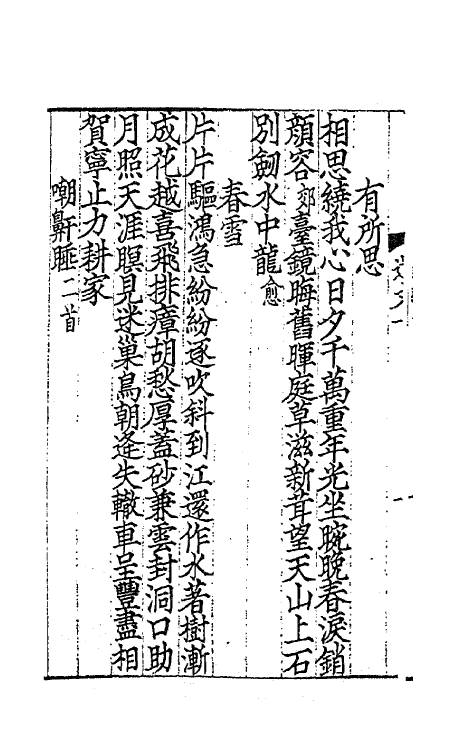 有所思
相思繞我心日夕千萬重年光坐晼晚春淚銷
顔容郊臺鏡晦舊暉庭草滋新茸望天山上石
別劒水中龍愈
春雪
片片驅鴻急紛紛逐吹斜到江還作水著樹漸
成花越喜飛排瘴胡愁厚蓋砂兼雲封洞口助
月照天涯暝見迷巢鳥朝逢失轍車呈豐盡相
賀寧止力耕家
嘲鼾睡二首